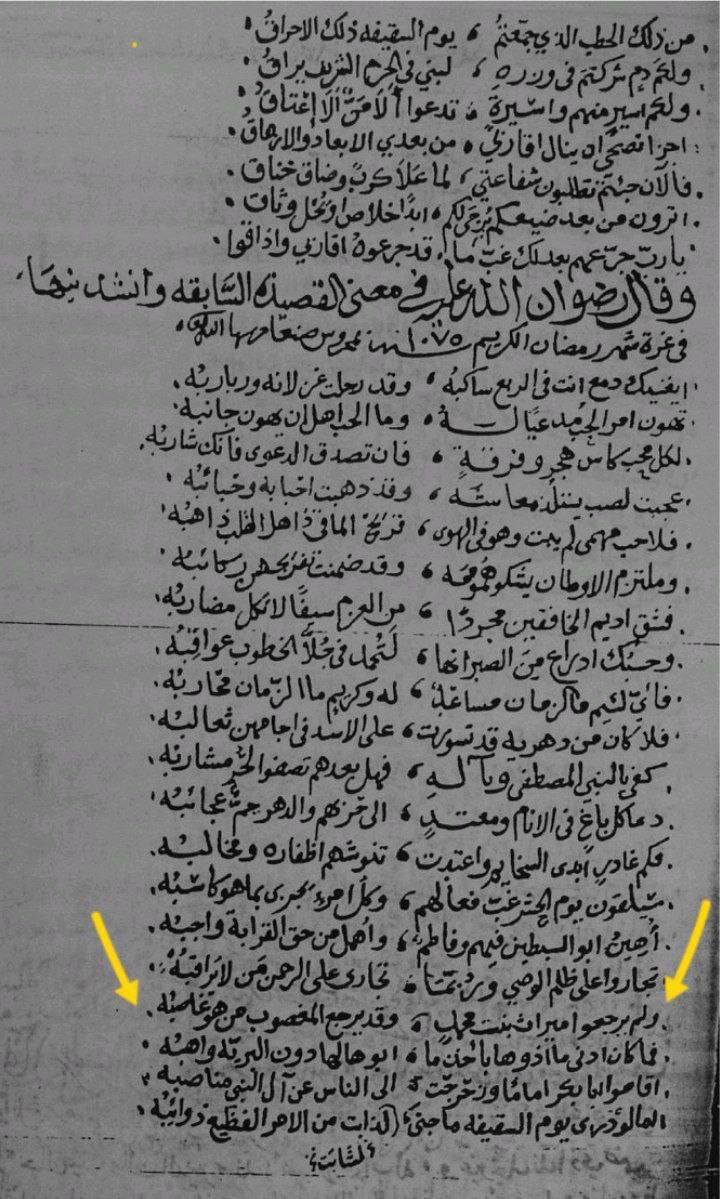 من ذلك الحطب الذي جمعتم ، يوم السقيفه ذلك الاحراق
ولكم دم شركتم في وزره ، لبني في الحرم الشريف يراق
ولكم اسير منهم واسيرة ، تدعوا ألا من ألا إعتاق
اجزا نصحي ان ينال اقاربي ، من بعدي الابعاد والارهاق
فالان جئتم تطلبون شفاعتي ، لما علا كرب وضاق خناق
اترون من بعد صنيعكم يرجى لكم ، ابدا خلاص او يحل وثاق
يارب جرعهم بعدلك غب ما ، قد جرعوه اقاربي واذاقوا
وقال رضوان الله عليه في معنى القصيده السابقه وانشدنيها
في غرة شهر رمضان الكريم سنة ١٠٧٥ بمحروس صنعا
ايغنيك دمع انت في الربع ساكبه ، وقد رحلت غزلانه ورباربه
تهون امر الحب مدعيا له ، وما الحب اهل ان يهون جانبه
لكل محب كاس هجر وفرقة ، فان تصدق الدعوى فانك شاربه
عجبت لصب يستلذ معاشه ، وقد ذهبت احبابه وحبائبه
فلا حب مهمى لم يبت وهو في الهوى ، قريح الماقي ذاهل القلب ذاهبه
وملتزم الاوطان يشكو همومه ، وقد ضمنت تفريجهن ركائبه
فشق اديم الخافقين مجردا ، من العزم سيفا لا تكل مضاربه
وحسبك ادراع من الصبر انها ، لتجمل في جلا الخطوب عواقبه
فاي لئيم مالزمان مساغبه ، له وكريم ما الزمان محاربه
فلا كان من دهر به قد تسورت ، على الاسد في اجامهن ثعالبه
كفى بالنبي المصطفى وبآله ، فهل بعدهم تصفوا لحر مشاربه
دعا كل باغ في الانام ومعتد ، الى حربهم والدهر جم عجائبه
فكم غادر ابدى السخايم واعتدت ، تنوشهم اظفاره ومخالبه
سيلقون يوم الحشر غب فعالهم ، وكل امرء يجزى بما هو كاسبه
أهين ابو السبطين فيهم وفاطم ، واهمل من حق القرابة واجبه
تجاروا على ظلم الوصي وربما ، تجارى على الرحمن من لا يراقبه
ولم يرجعوا ميراث بنت محمد ، وقد يرجع المغصوب من هو غاصبه
فما كان ادنى ما اذوها باخذ ما ، ابوها لها دون البرية واهبه
اقاموا ابا بكر اماما وزحزحت ، الى الناس عن آل النبي مناصبه
يوم السقيفه ما جنى ، لذابت من الامر الفظيع ذوائبه